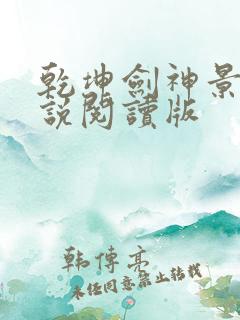 乾坤劍神景
說閱讀版
韩傳亮
未经同意禁止转载